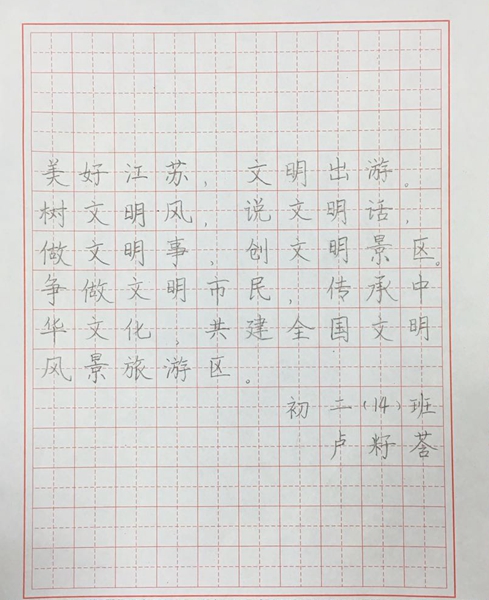 美好江苏，文明出游。
树文明风，说文明话，
做文明事，创文明景区。
争做文明市民，传承中
华文化，共建全国文明
风景旅游区。
初二（14）班
卢籽荅